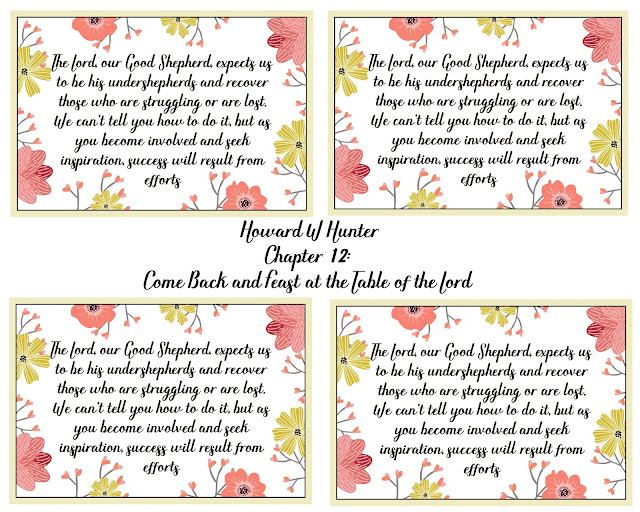 The Lord, our Good Shepherd, expects us
to be his undershepherds and recover
those who are struggling or are lost.
We can't tell you how to do it, but as
you become involved and seek
inspiration, success will result from
efforts
The Lord, our Good Shepherd, expects us
to be his undershepherds and recover
those who are struggling or are lost.
We can't tell you how to do it, but as
you become involved and seek
inspiration, success will result from
efforts
Howard W Hunter
Chapter 12:
Come Back and Feast at the Table of the Lord
The Lord, our Good Shepherd, expects us
to be his undershepherds and recover
those who are struggling or are lost.
We can't tell you how to do it, but as
you become involved and seek
inspiration, success will result from
efforts
The Lord, our Good Shepherd, expects us
to be his undershepherds and recover
those who are struggling or are lost.
We can't tell you how to do it, but as
you become involved and seek
inspiration, success will result from
efforts